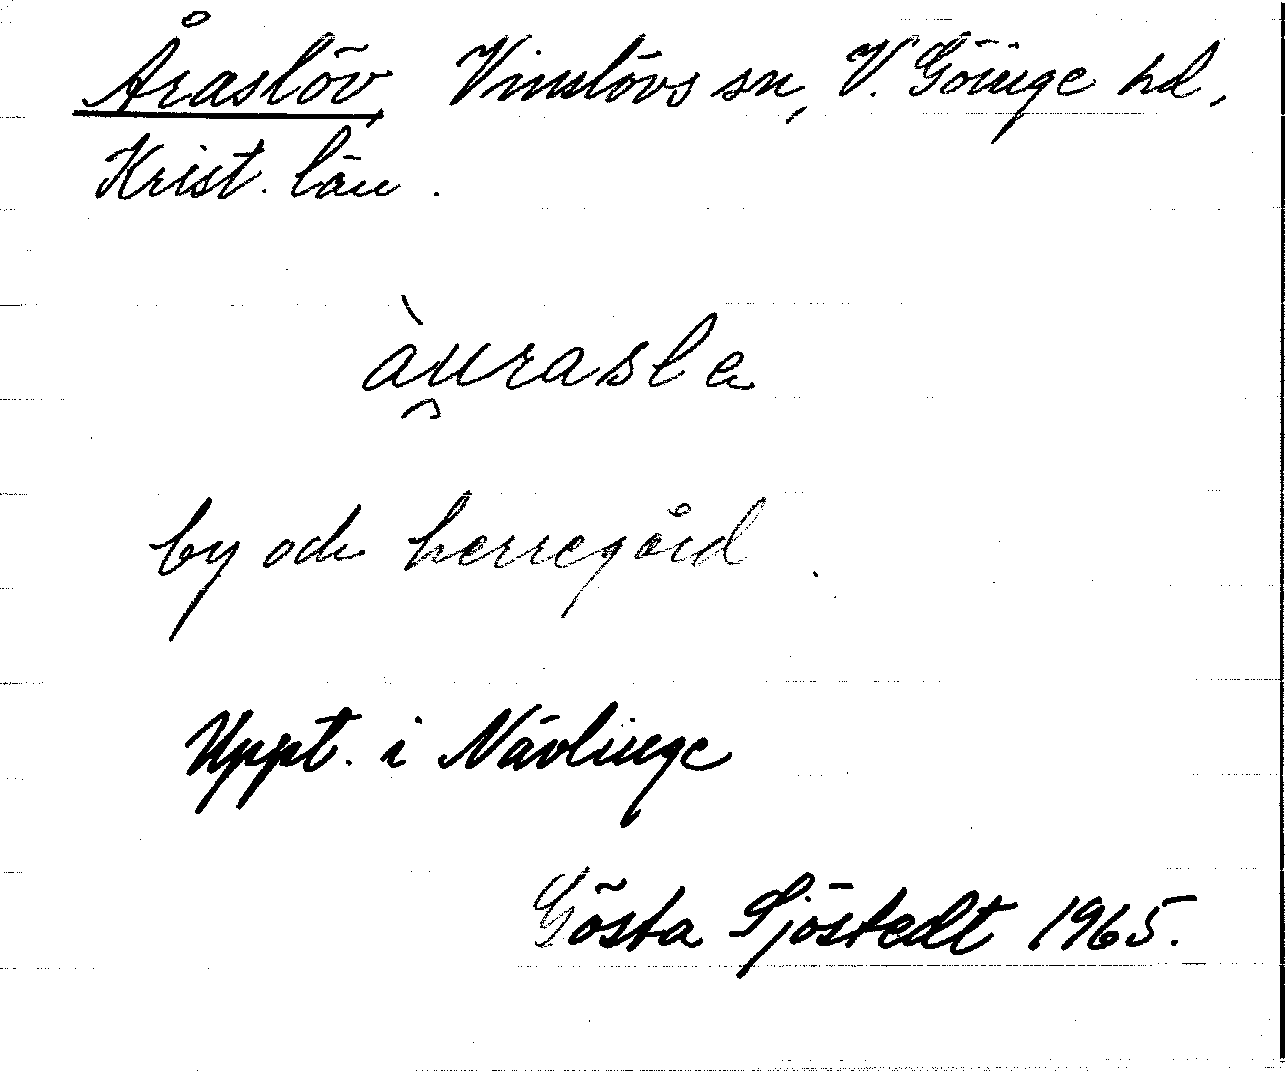 Åraslöv, Vinslövs sn, V. Göinge hd,
Krist. län.
àu̯rasla
by och herregård.
Uppt. i Nävlinge
Gösta Sjöstedt 1965.